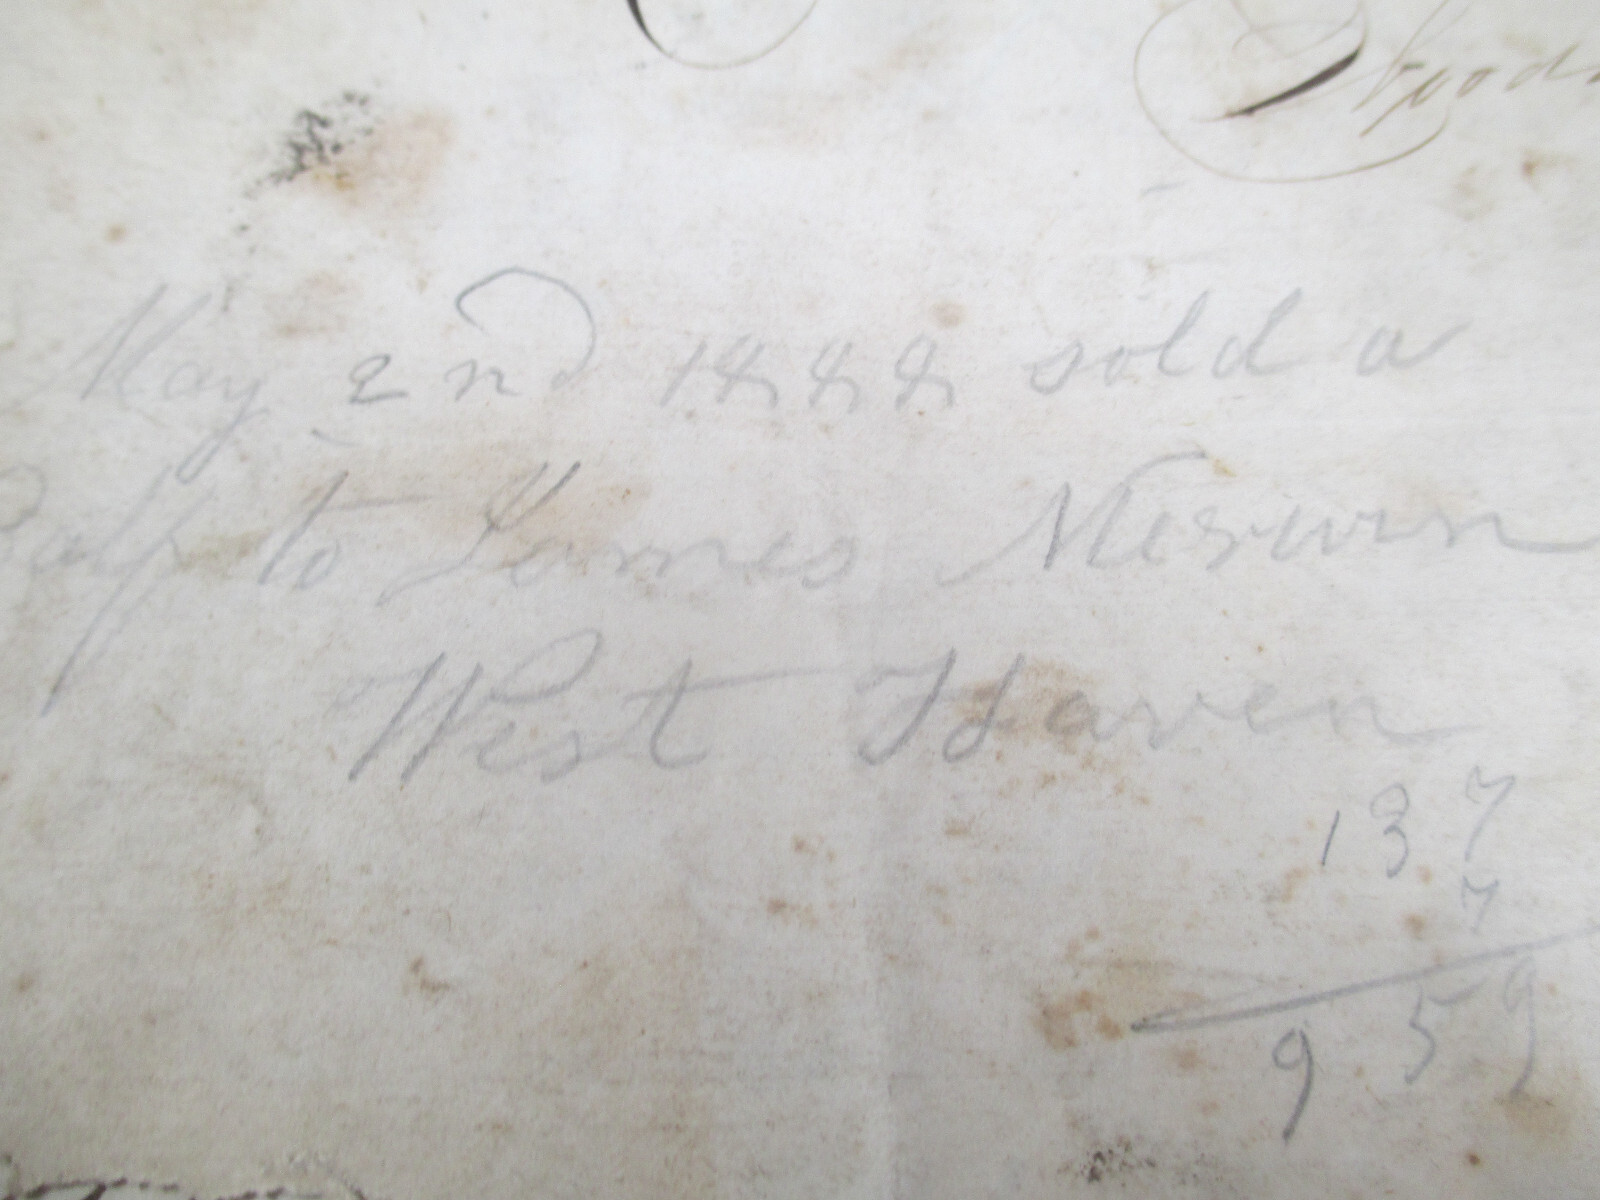 May 2nd 1888 sold a
Calf to James Merwin
West Haven
137
7
959